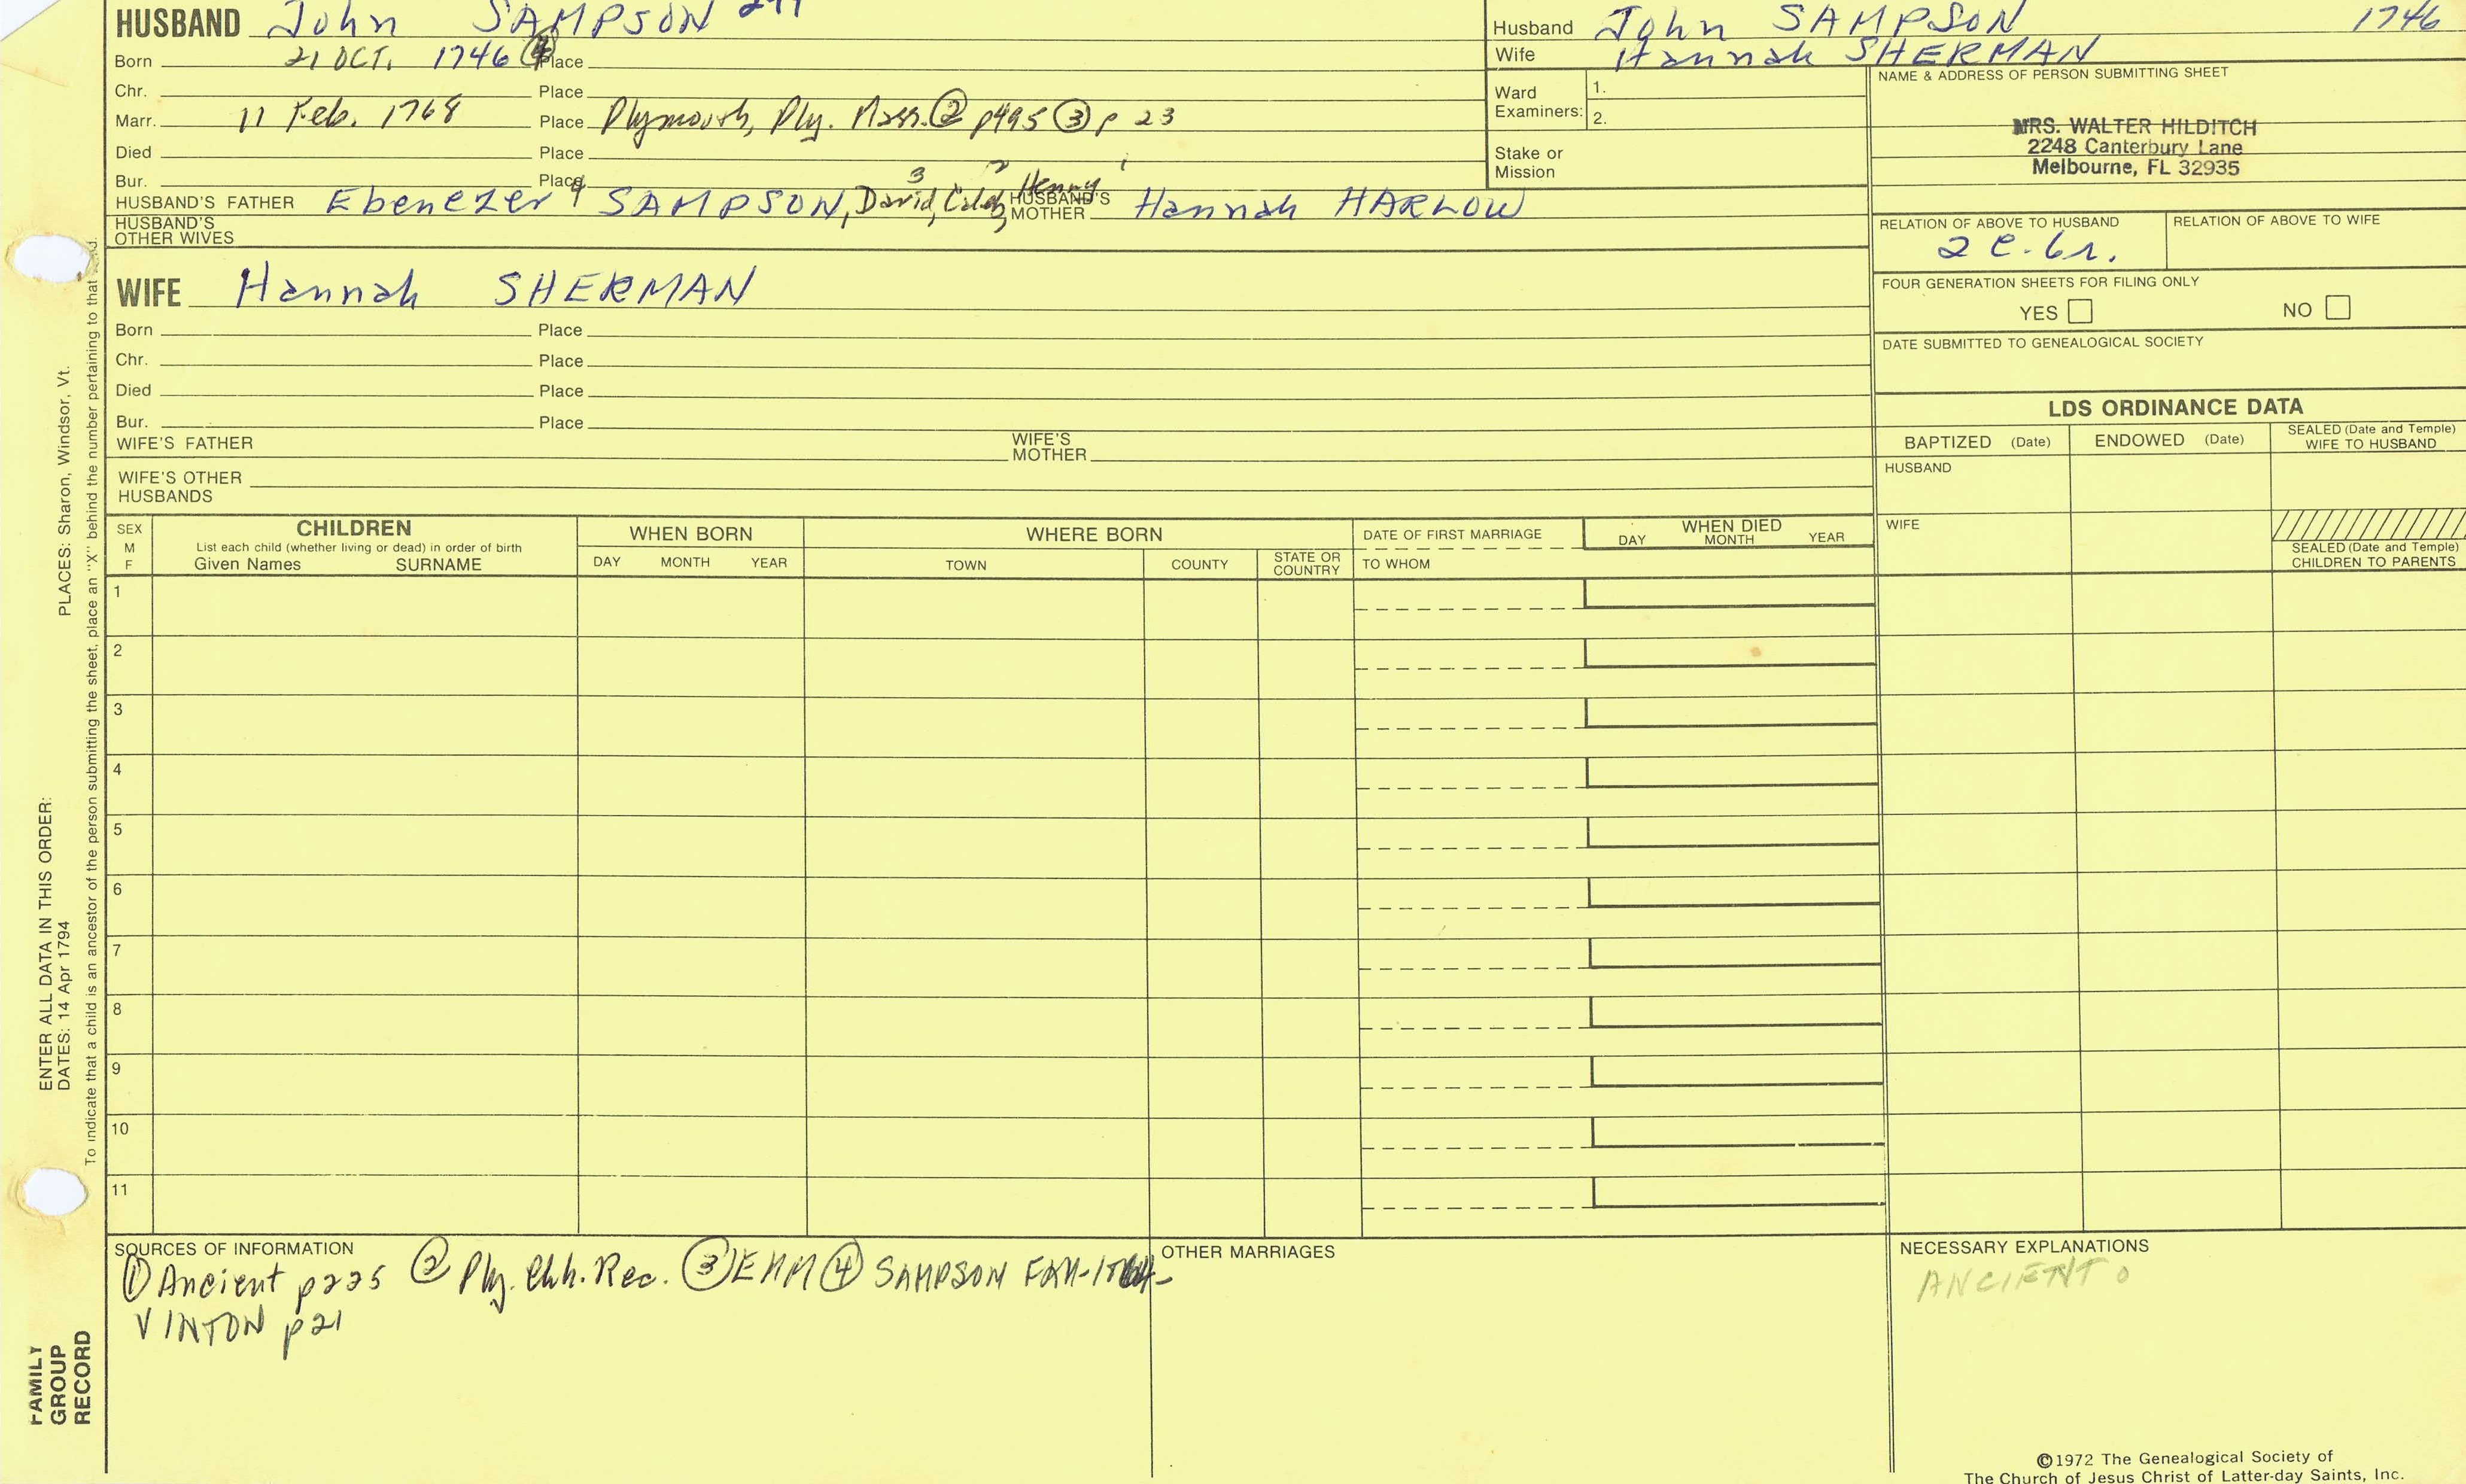 HUSBAND John SAMPSON
Born 21 OCT. 1746 ④ Place
Chr. Place
Marr. 11 Feb. 1768 Place Plymouth, Ply. Mass. ② p495 ③ p 23
Died Place
Bur. Place
HUSBAND'S FATHER Ebenezer 4 SAMPSON, David, 3 Caleb, 2 Henry 1 HUSBAND'S MOTHER Hannah HARLOW
HUSBAND'S OTHER WIVES
Husband John SAMPSON 1746
Wife Hannah SHERMAN
Ward Examiners: 1.
2.
Stake or Mission
NAME & ADDRESS OF PERSON SUBMITTING SHEET
MRS. WALTER HILDITCH
2248 Canterbury Lane
Melbourne, FL 32935
RELATION OF ABOVE TO HUSBAND RELATION OF ABOVE TO WIFE
2 c-6r.
FOUR GENERATION SHEETS FOR FILING ONLY
YES NO
DATE SUBMITTED TO GENEALOGICAL SOCIETY
WIFE Hannah SHERMAN
Born Place
Chr. Place
Died Place
Bur. Place
WIFE'S FATHER WIFE'S MOTHER
WIFE'S OTHER HUSBANDS
LDS ORDINANCE DATA
BAPTIZED (Date) ENDOWED (Date) SEALED (Date and Temple) WIFE TO HUSBAND
HUSBAND
WIFE
SEALED (Date and Temple) CHILDREN TO PARENTS
SEX M F
CHILDREN
List each child (whether living or dead) in order of birth
Given Names SURNAME
WHEN BORN
DAY MONTH YEAR
WHERE BORN
TOWN COUNTY STATE OR COUNTRY
DATE OF FIRST MARRIAGE
TO WHOM
WHEN DIED
DAY MONTH YEAR
1
2
3
4
5
6
7
8
9
10
11
SOURCES OF INFORMATION
① Ancient p225 ② Ply. Chh. Rec. ③ EMM ④ SAMPSON FAM-
VINTON p21
OTHER MARRIAGES
NECESSARY EXPLANATIONS
ANCIENT
©1972 The Genealogical Society of
The Church of Jesus Christ of Latter-day Saints, Inc.
FAMILY
GROUP
RECORD
ENTER ALL DATA IN THIS ORDER:
DATES: 14 Apr 1794 PLACES: Sharon, Windsor, Vt.
To indicate that a child is an ancestor of the person submitting the sheet, place an "X" behind the number pertaining to that